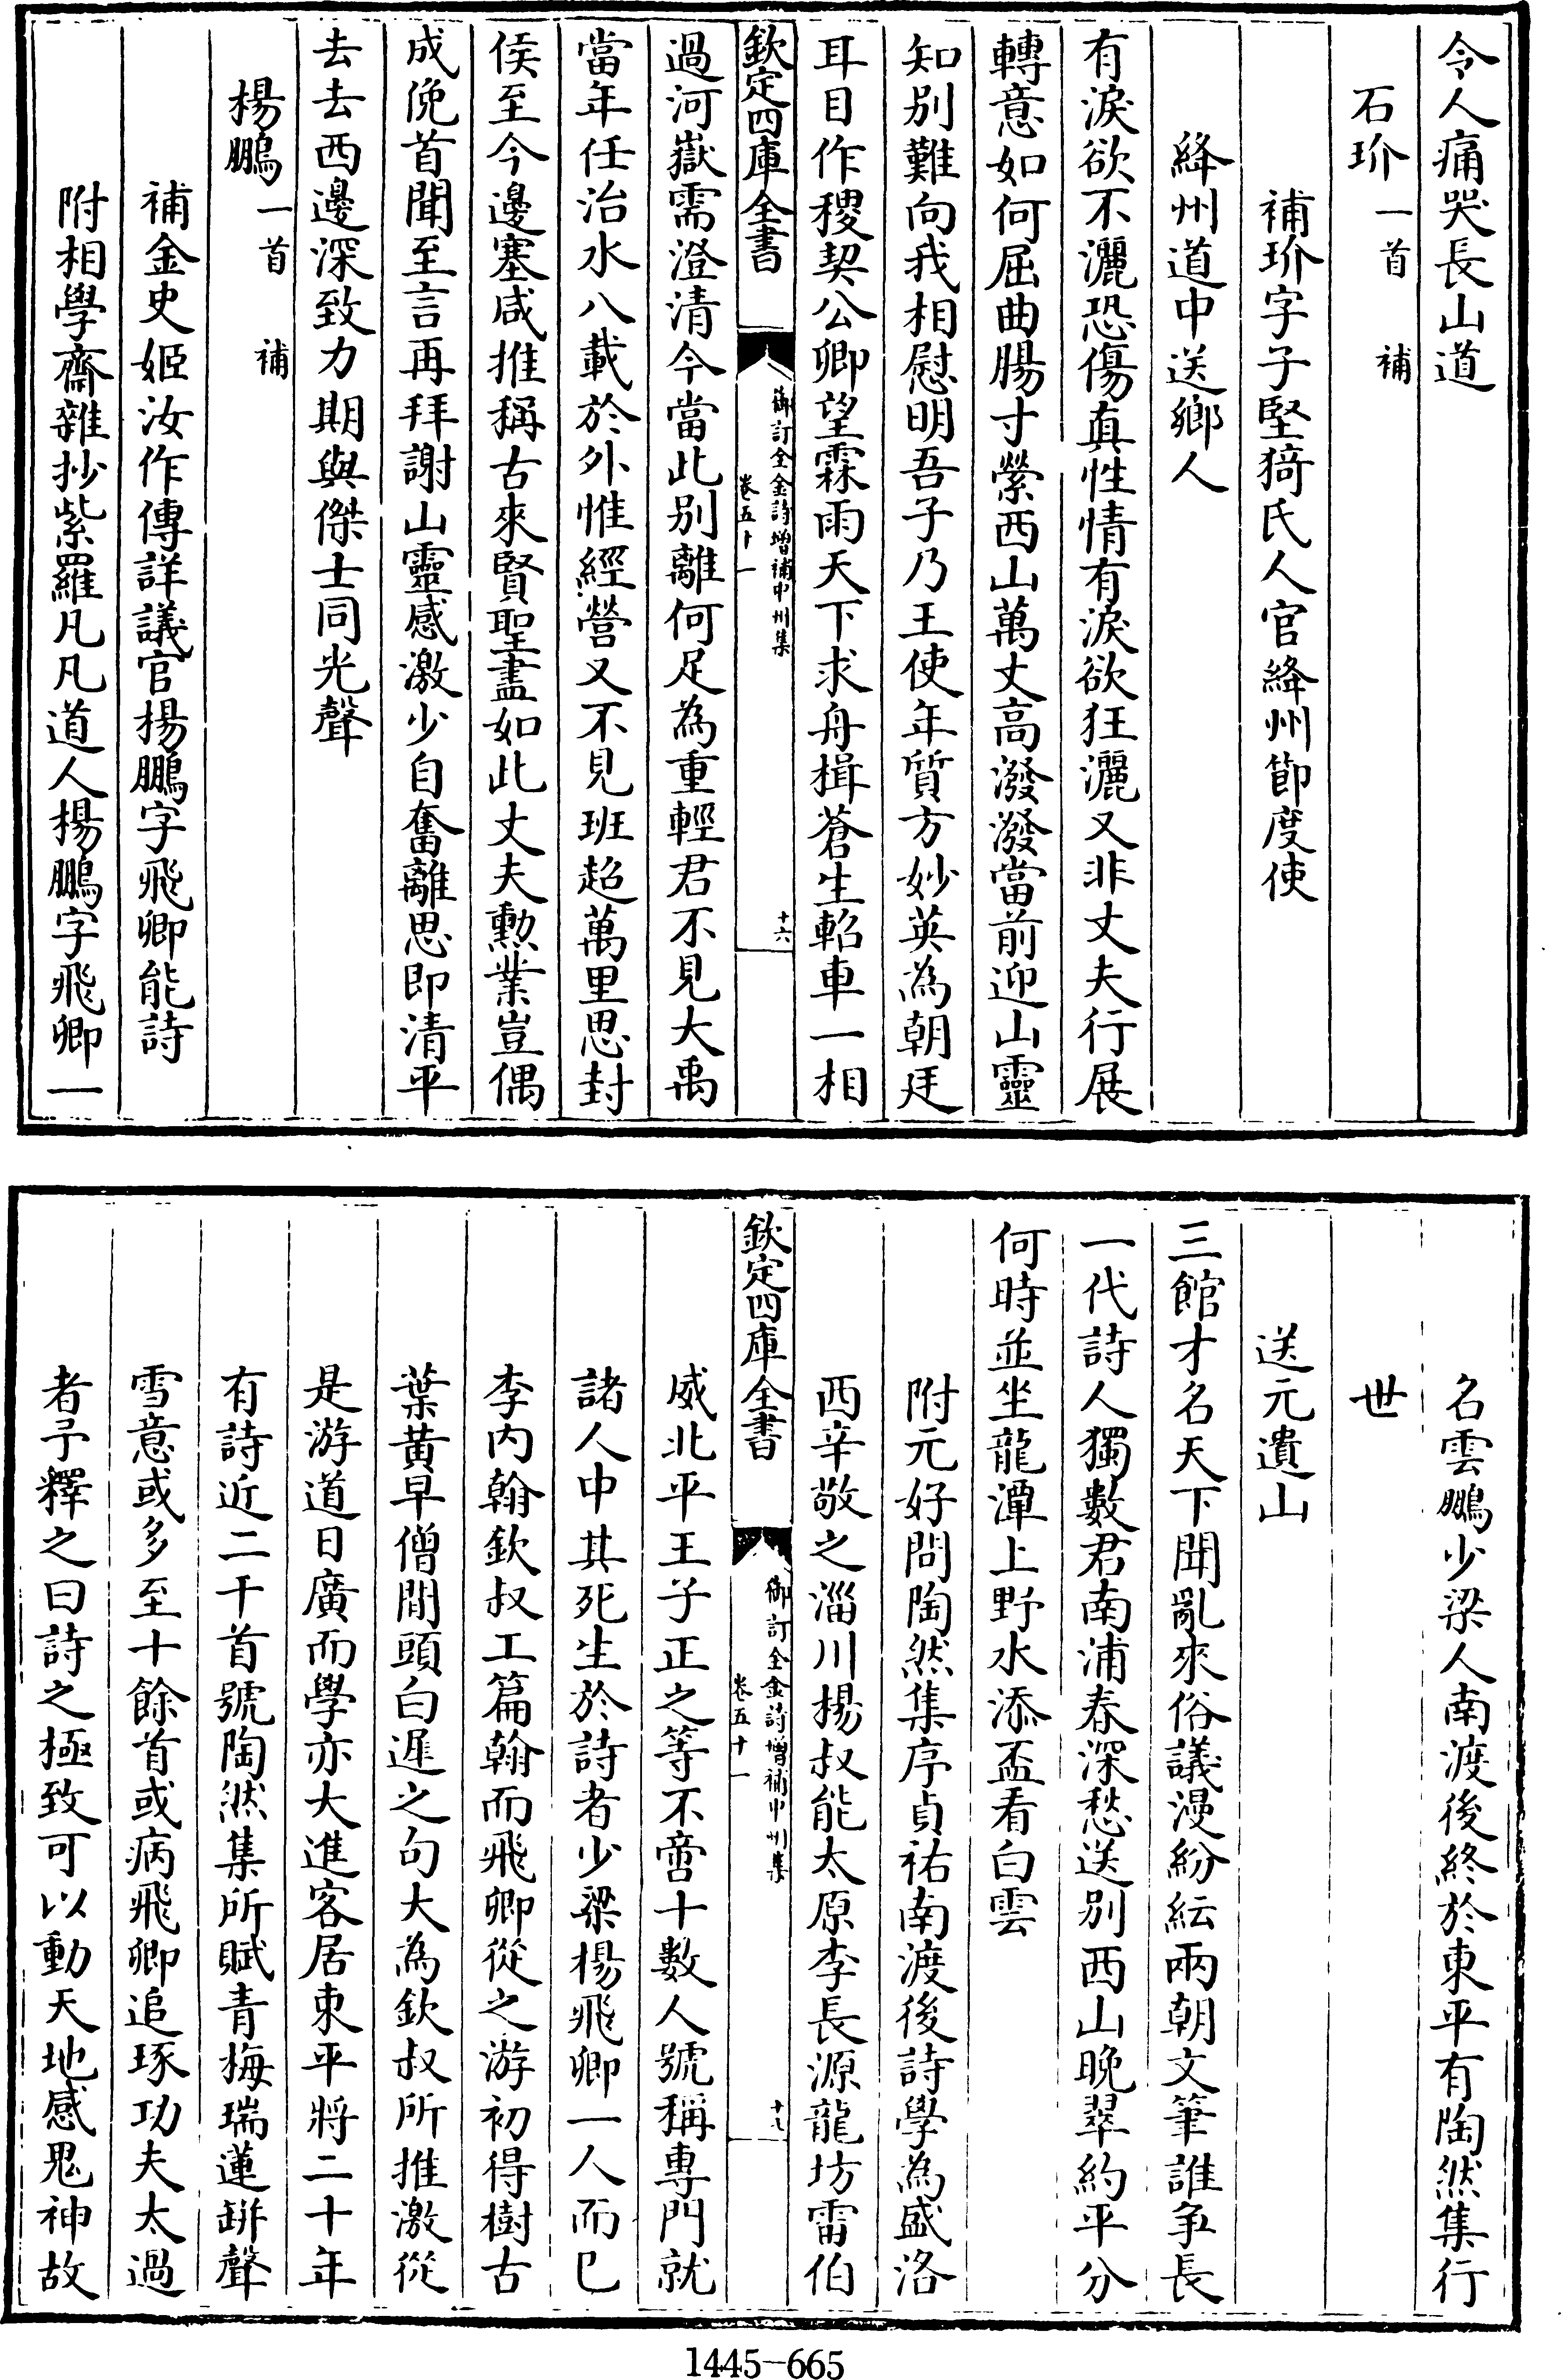 令人痛哭長山道
石玠一首　補
補玠字子堅猗氏人官絳州節度使
絳州道中送鄉人
有淚欲不灑恐傷真性情有淚欲狂灑又非丈夫行展
轉意如何屈曲腸寸縈西山萬丈高潑潑當前迎山靈
知别難向我相慰明吾子乃王使年質方妙英為朝廷
耳目作稷契公卿望霖雨天下求舟楫蒼生軺車一相
欽定四庫全書
御訂全金詩增補中州集
卷五十一
十六
過河嶽需澄清今當此别離何足為重輕君不見大禹
當年任治水八載於外惟經營又不見班超萬里思封
侯至今邊塞咸推稱古來賢聖盡如此丈夫勲業豈偶
成俛首聞至言再拜謝山靈感激少自奮離思即清平
去去西邊深致力期與傑士同光聲
楊鵬一首　補
補金史姬汝作傳詳議官楊鵬字飛卿能詩
附相學齋雜抄紫羅凡凡道人楊鵬字飛卿一
名雲鵬少梁人南渡後終於東平有陶然集行
世
送元遺山
三館才名天下聞亂來俗議漫紛紜兩朝文筆誰争長
一代詩人獨數君南浦春深愁送别西山晚翠約平分
何時並坐龍潭上野水添盃看白雲
附元好問陶然集序貞祐南渡後詩學為盛洛
西辛敬之淄川楊叔能太原李長源龍坊雷伯
欽定四庫全書
御訂全金詩增補中州集
卷五十一
十七
威北平王子正之等不啻十數人號稱專門就
諸人中其死生於詩者少梁楊飛卿一人而已
李内翰欽叔工篇翰而飛卿從之游初得樹古
葉黄早僧閒頭白遲之句大為欽叔所推激從
是游道日廣而學亦大進客居東平將二十年
有詩近二千首號陶然集所賦青梅瑞蓮缾聲
雪意或多至十餘首或病飛卿追琢功夫太過
者予釋之曰詩之極致可以動天地感鬼神故
1445-665